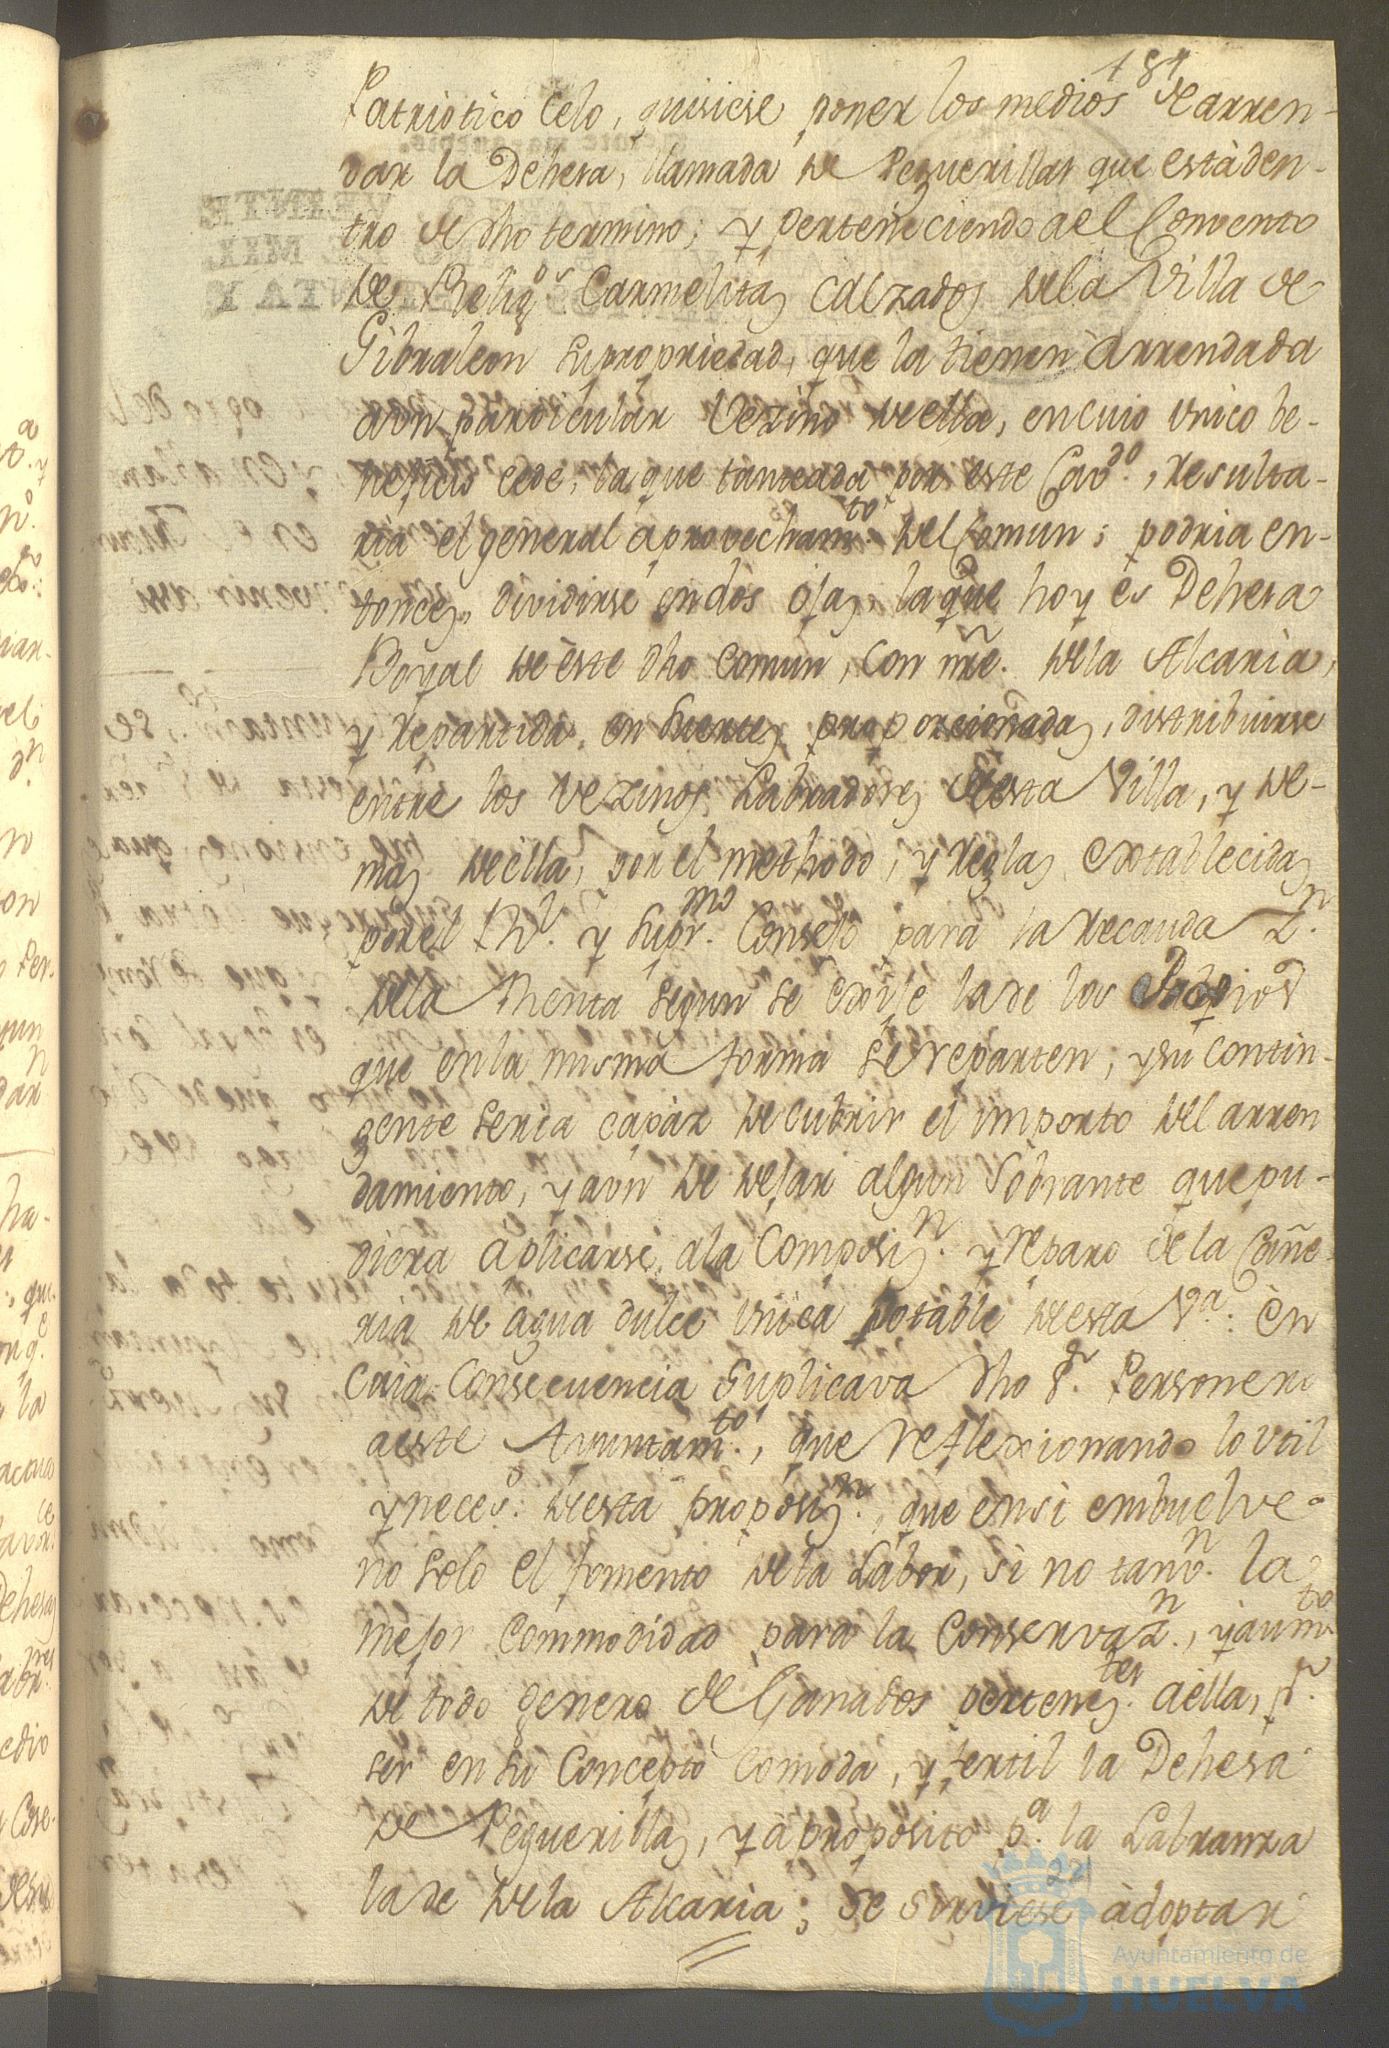 184
Patriotico Celo, quisiese poner los medios de arren-
dar la Dehesa, llamada de Peguerillas que està den-
tro de dho termino; y perteneciendo a el Convento
de Relig.os Carmelitas Calzados dela Villa de
Gibraleon su propriedad, que la tienen arrendada
aun particular Vezino de ella, en cuio unico be-
neficio cede, la que tanteada por este Cav.do, resulta-
ria el general aprovecham.to del Comun; podria en-
tonces dividirse en dos ojas, la que hoy es Dehesa
Boyal de èste dho Comun, con nre. dela Alcaria,
y repartida en suertes proporcionadas, distribuirse
entre los Vezinos Labradores de esta Villa, y de-
mas de ella, por el methodo, y reglas extablecidas
por el Rl. y Supr.mo Consejo para la recaudaz.n
dela Renta segun se exije la de los Propios
que en la misma forma se reparten; y su contin-
gente seria capàz de cubrir el importo del arren
damiento, y aun de dejar algun Sobrante que pu-
diera aplicarse ala Composiz.n y reparo de la Cañe-
ria de agua dulce unica potable de esta V.a: En
cuia Consecuencia Suplicava dho S.r Personero
a este Ayuntam.to, que reflexionando lo util
y neces.o de esta proposiz.n, que en si embuelve
no solo el fomento dela Labor, si no tamv.n la
mejor Commodidad para la Conservaz.n, y aum.to
de todo genero de Ganados pertenez.tes aella, p.r
ser en su Concepto Comoda, y fertil la Dehesa
de Peguerillas, y a proposito p.a la Labranza
la de dela Alcaria; se sirviese adoptar
221
Ayuntamiento de
HUELVA